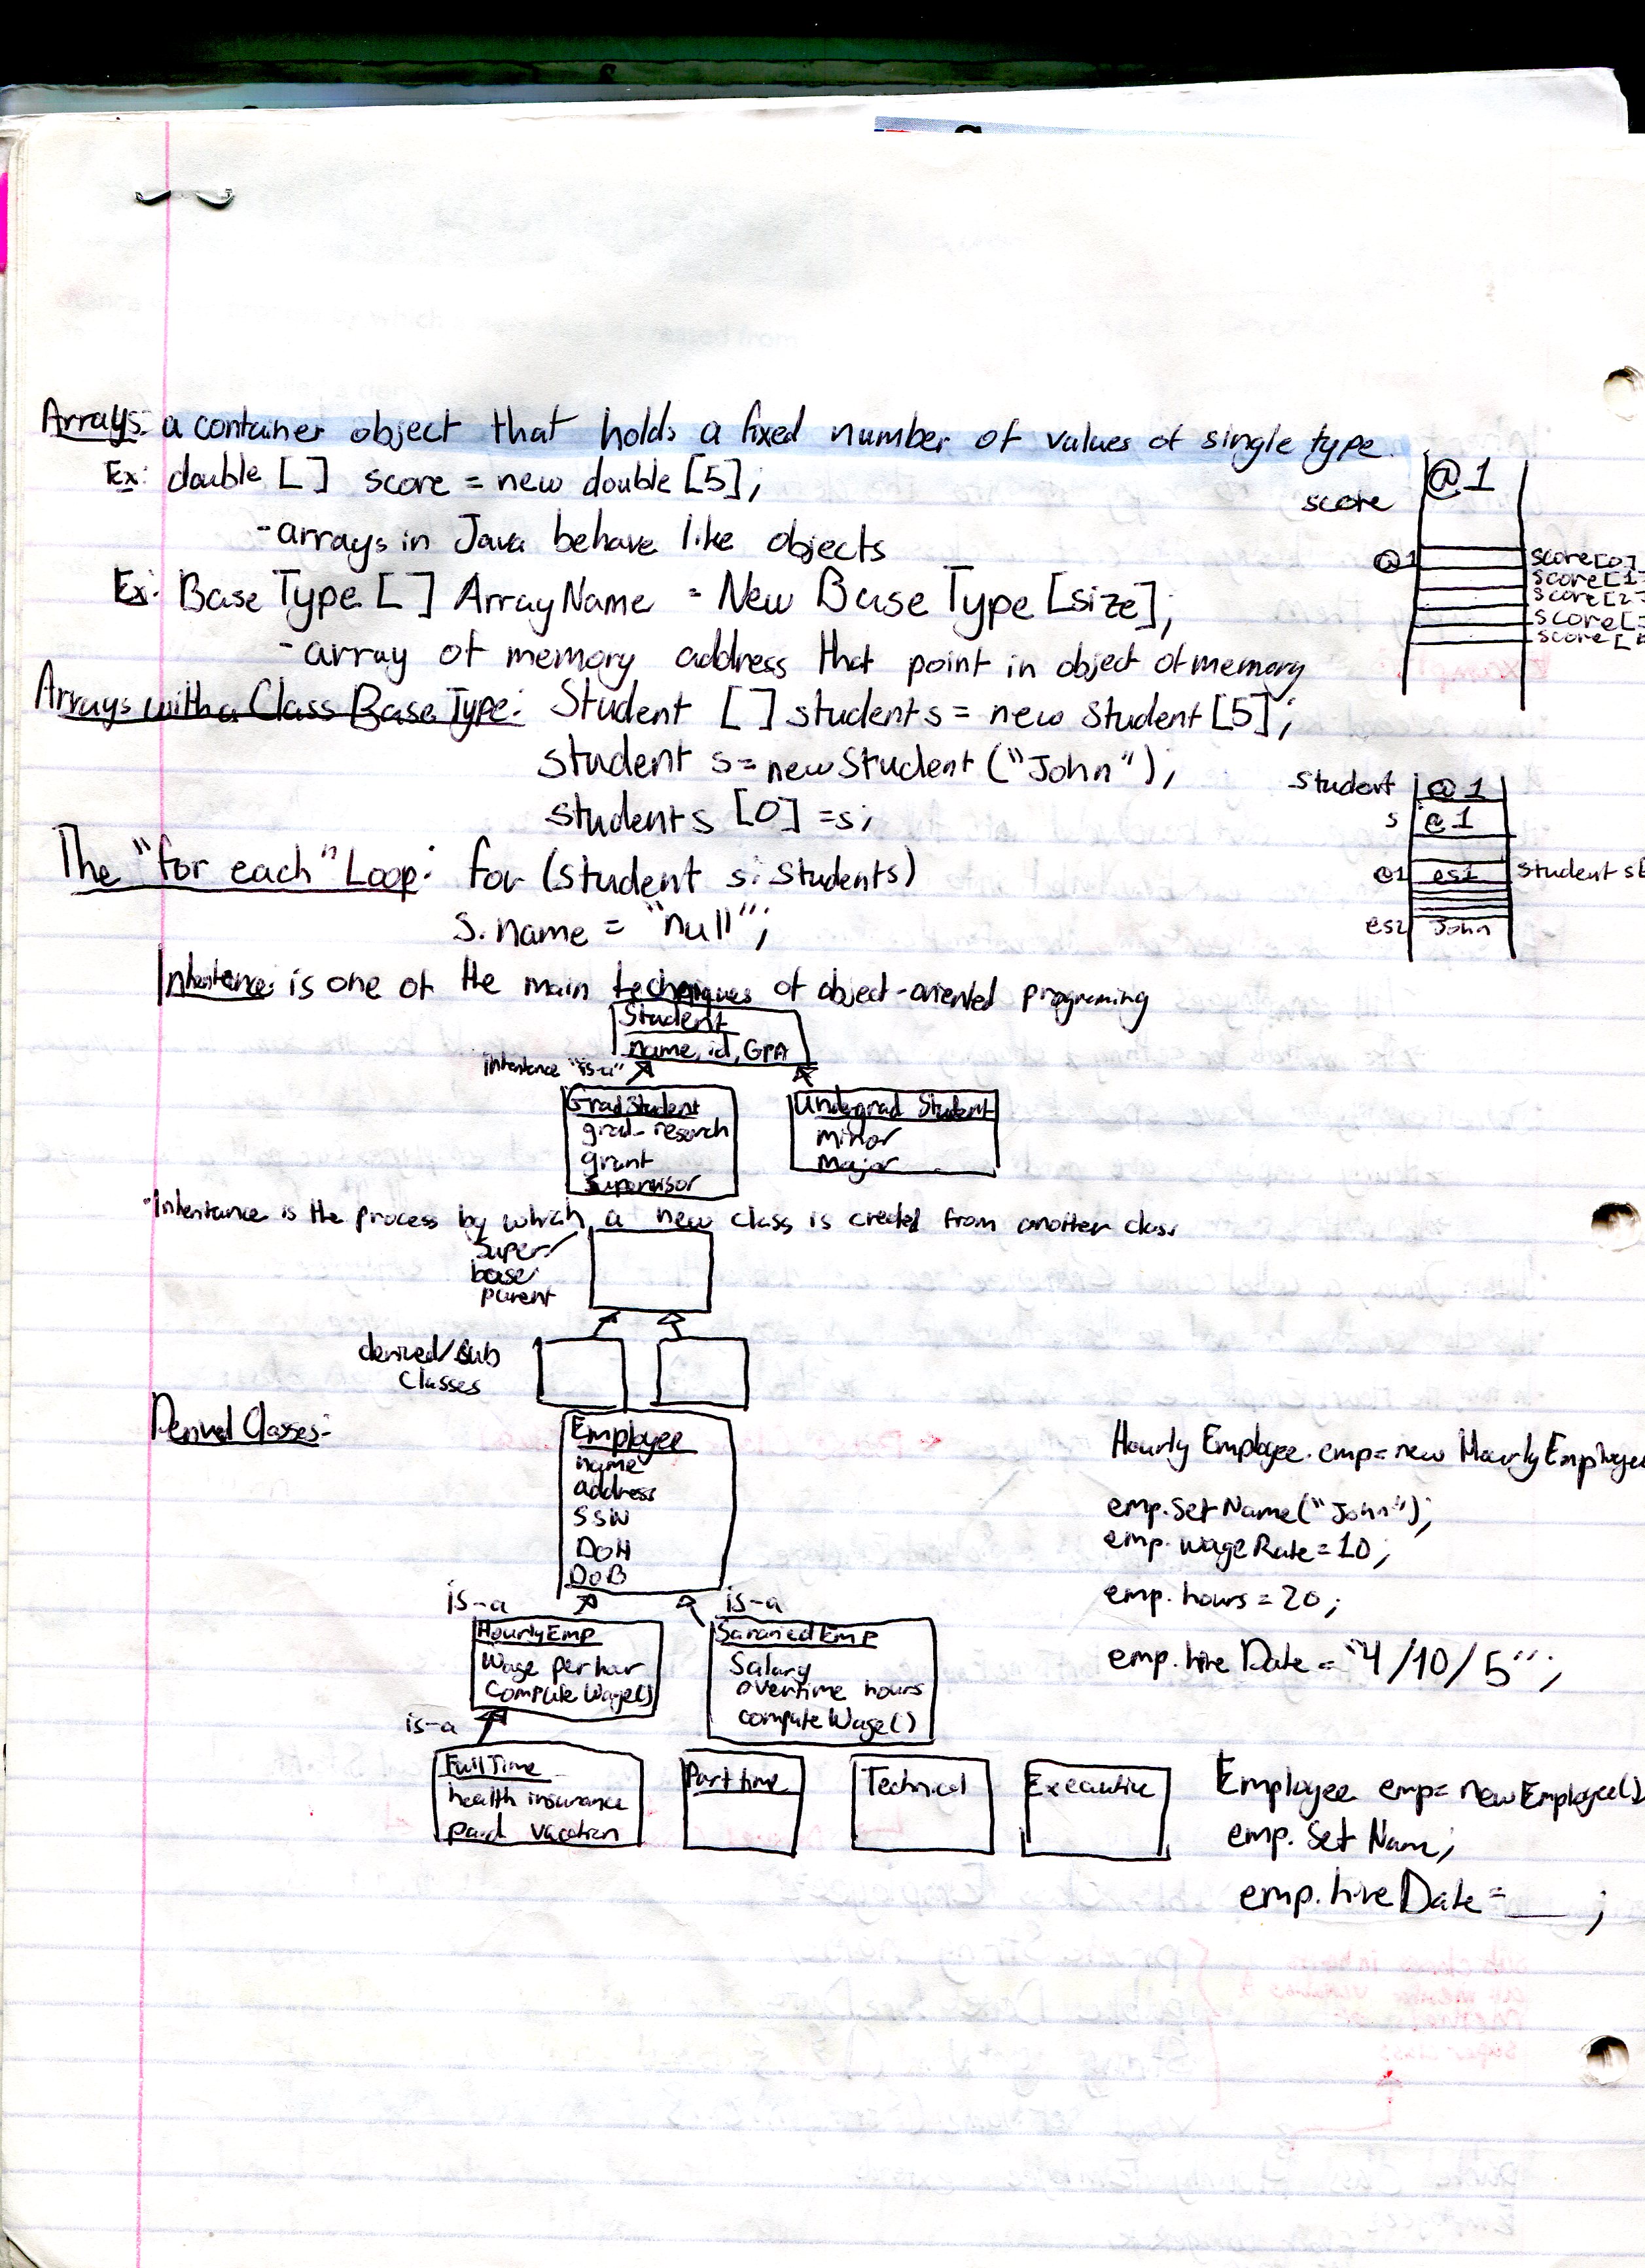 Arrays: a container object that holds a fixed number of values of single type.
Ex: double [ ] score = new double [5];
- arrays in Java behave like objects
Ex: Base Type [ ] ArrayName = New Base Type [size];
- array of memory address that point in object of memory
score
@1
@1
score[0]
score[1]
score[2]
score[
score[
Arrays with a Class Base Type: Student [ ] students = new Student [5];
student s = new Student ("John");
students [0] = s;
student @1
s @1
@1 es1 student st
es2 John
The "for each" Loop: for (student s: Students)
s. name = "null";
Inheritence: is one of the main techniques of object-oriented programing
Student
name, id, GPA
inheritence "is-a"
GradStudent
grad-reserch
grant
Supervisor
Undergrad Student
minor
Major
-Inheritance is the process by which a new class is created from another class
Super/
base/
parent
derived/sub
Classes
Derived Classes:-
Employee
name
address
SSN
DoH
DoB
is-a
is-a
HourlyEmp
Wage per hour
Compute Wage()
SaraniedEmp
Salary
overtime hours
compute Wage()
is-a
FullTime
health insurance
paid vacation
Part time
Technical
Executive
Hourly Employee. emp = new HourlyEmployee
emp. Set Name("John");
emp. wage Rate = 10;
emp. hours = 20;
emp. hire Date = "4/10/5";
Employee emp = new Employee()
emp. Set Nam;
emp. hire Date = ___ ;